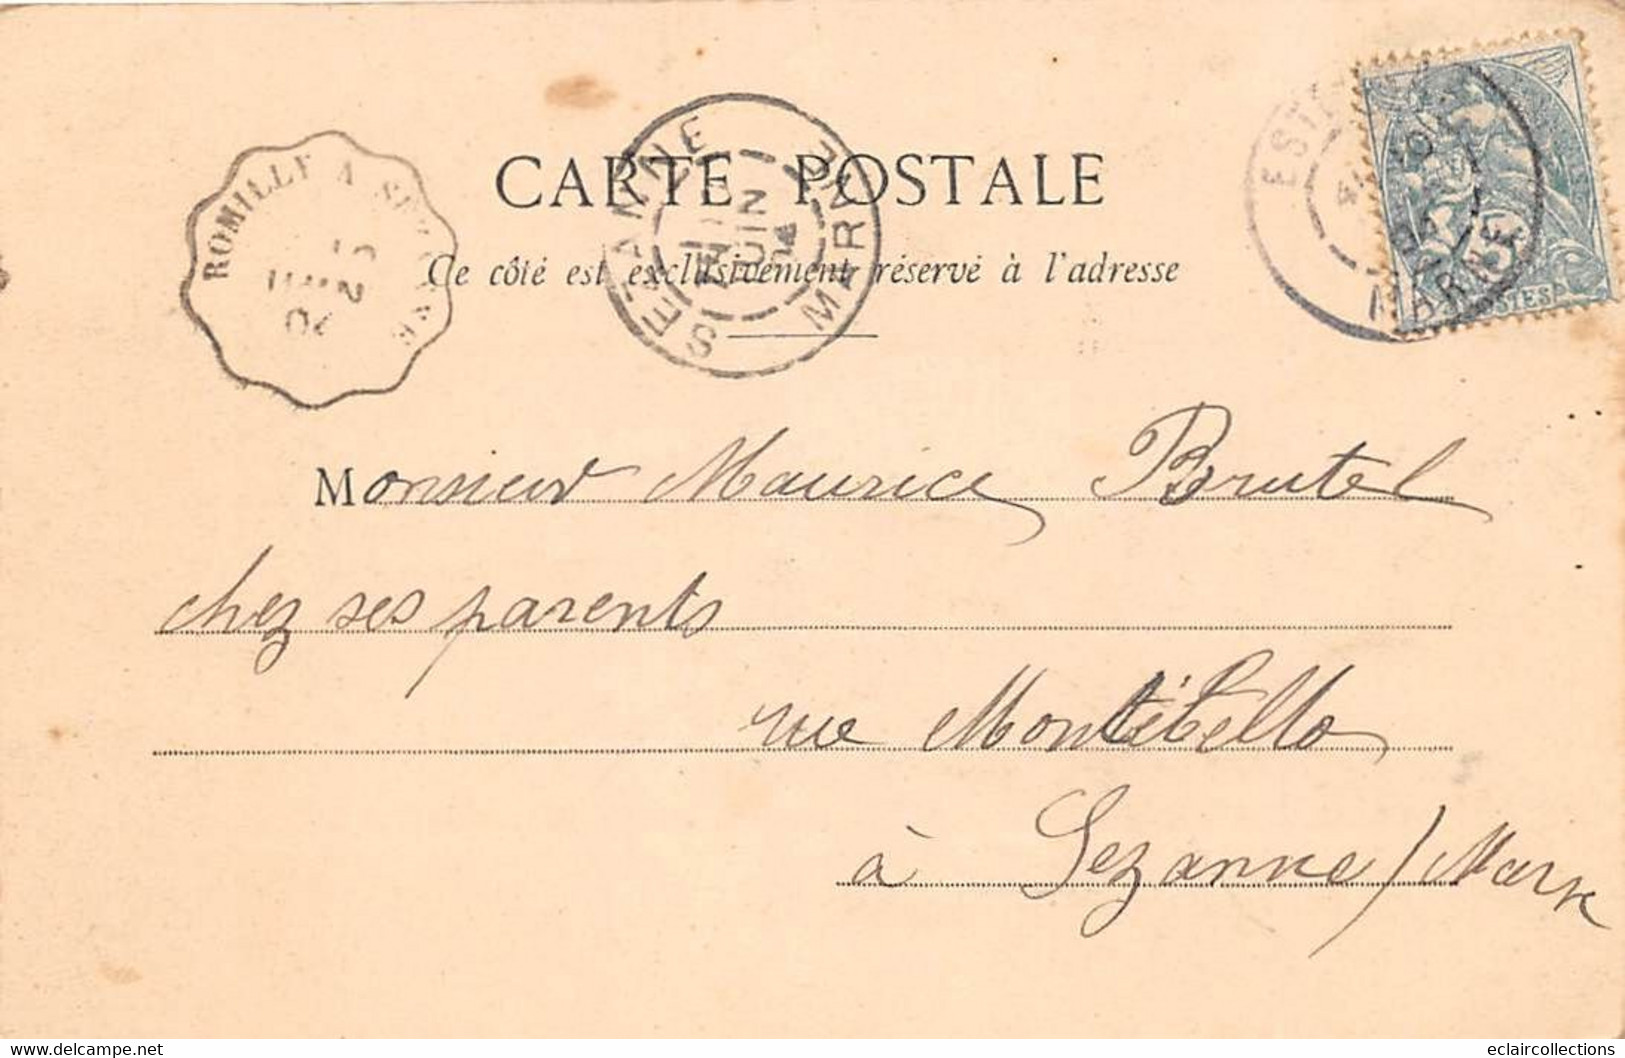 CARTE POSTALE
Ce côté est exclusivement réservé à l'adresse
ROMILLY A
SEZANNE
JUIN
04
MARNE
MARNE
POSTES
Monsieur Maurice Brutel
chez ses parents
rue Montebello
à Sezanne / Marne
eclaircollections